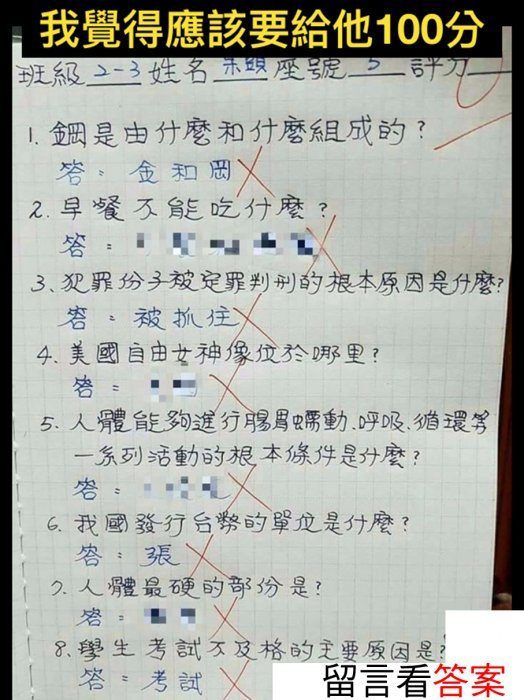 我覺得應該要給他100分
班級 2-3 姓名 朱頭 座號 5 評分
1. 鋼是由什麼和什麼組成的?
答: 金和岡
2. 早餐不能吃什麼?
答:
3. 犯罪份子被定罪判刑的根本原因是什麼?
答: 被抓住
4. 美國自由女神像位於哪里?
答:
5. 人體能夠進行腸胃蠕動、呼吸、循環等
一系列活動的根本條件是什麼?
答:
6. 我國發行台幣的單位是什麼?
答: 張
7. 人體最硬的部份是?
答:
8. 學生考試不及格的主要原因是?
答: 考試
留言看答案